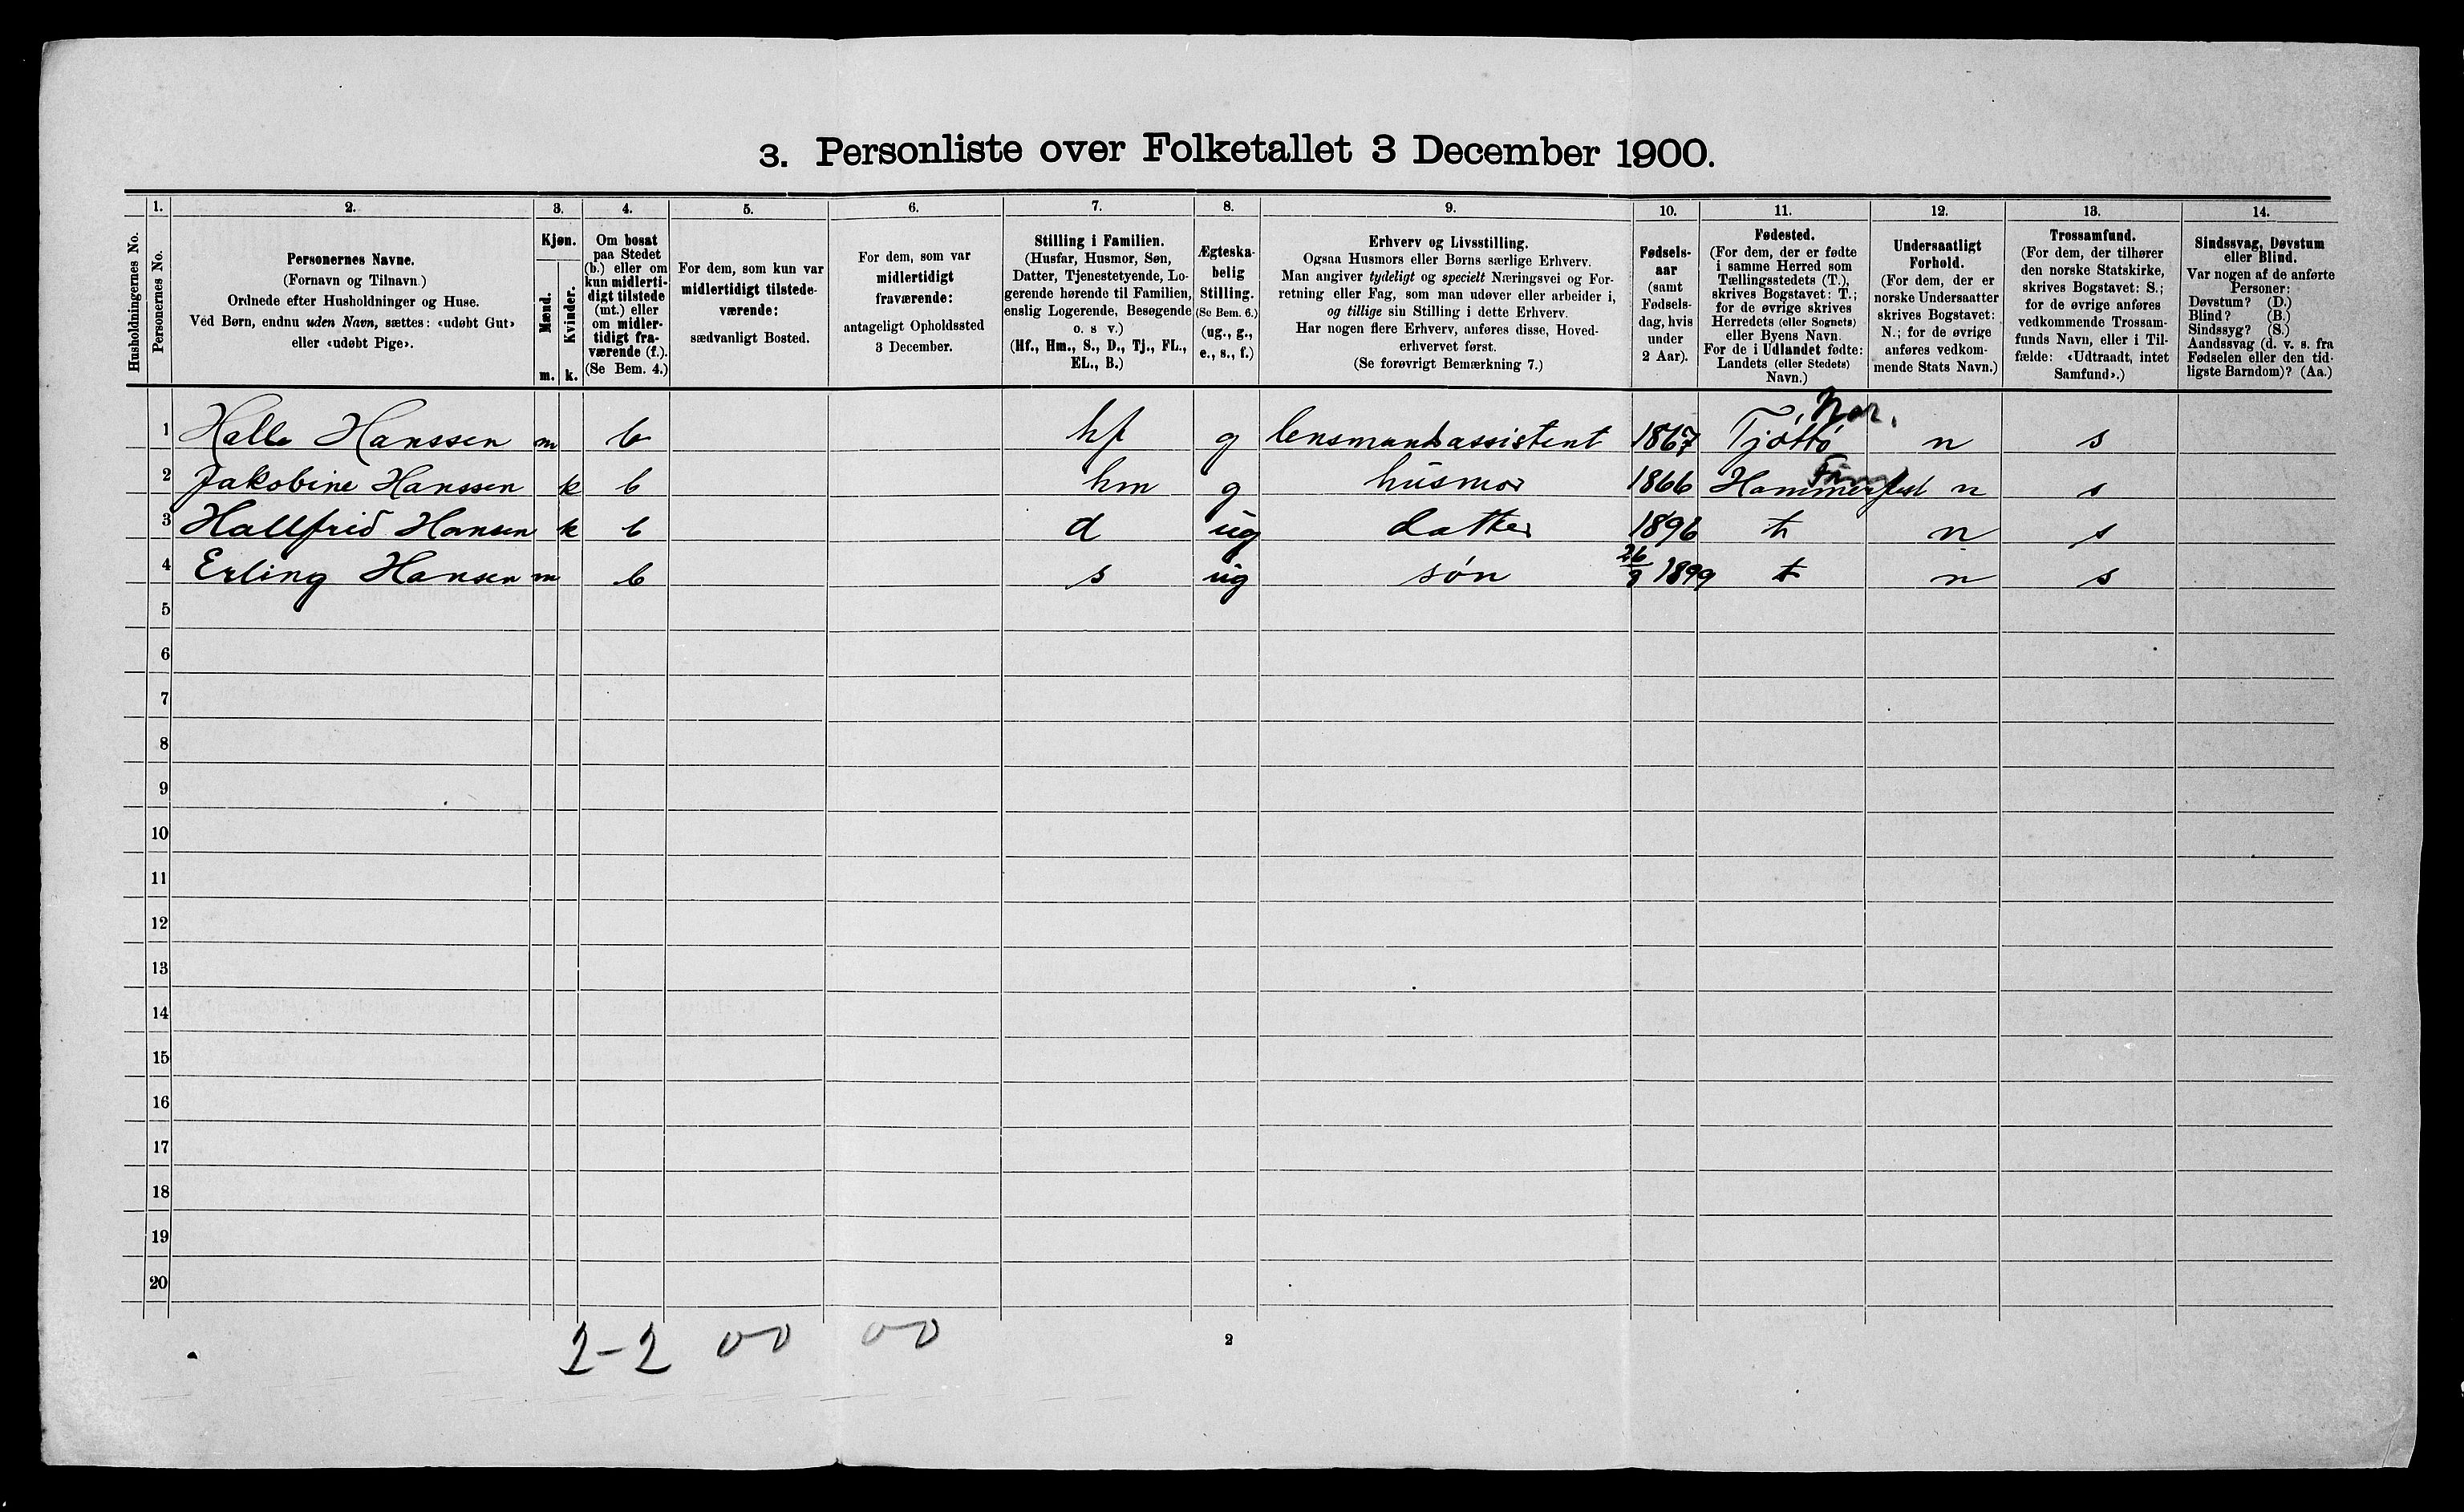 3. Personliste over Folketallet 3 December 1900.
Husholdningernes No.
1.
Personernes No.
2.
Personernes Navne.
(Fornavn og Tilnavn)
Ordnede efter Husholdninger og Huse.
Ved Børn, endnu uden Navn, sættes: «udøbt Gut»
eller «udøbt Pige».
3.
Kjøn.
Mænd.
m.
Kvinder.
k.
4.
Om bosat
paa Stedet
(b.) eller om
kun midlerti-
digt tilstede
(mt.) eller
om midler-
tidigt fra-
værende (f.).
(Se Bem. 4.)
5.
For dem, som kun var
midlertidigt tilstede-
værende:
sædvanligt Bosted.
6.
For dem, som var
midlertidigt
fraværende:
antageligt Opholdssted
3 December.
7.
Stilling i Familien.
(Husfar, Husmor, Søn,
Datter, Tjenestetyende, Lo-
gerende hørende til Familien,
enslig Logerende, Besøgende
o. s v.)
(Hf., Hm., S., D., Tj., FL.,
EL., B.)
8.
Ægteska-
belig
Stilling.
(Se Bem. 6.)
(ug., g.,
e., s., f.)
9.
Erhverv og Livsstilling.
Ogsaa Husmors eller Børns særlige Erhverv.
Man angiver tydeligt og specielt Næringsvei og For-
retning eller Fag, som man udøver eller arbeider i,
og tillige sin Stilling i dette Erhverv.
Har nogen flere Erhverv, anføres disse, Hoved-
erhvervet først.
(Se forøvrigt Bemærkning 7.)
10.
Fødsels-
aar
(samt
Fødsels-
dag, hvis
under
2 Aar).
11.
Fødested.
(For dem, der er fødte
i samme Herred som
Tællingsstedets (T.),
skrives Bogstavet: T.;
for de øvrige skrives
Herredets (eller Sognets)
eller Byens Navn.
For de i Udlandet fødte:
Landets (eller Stedets)
Navn.)
12.
Undersaatligt
Forhold.
(For dem, der er
norske Undersaatter
skrives Bogstavet:
N.; for de øvrige
anføres vedkom-
mende Stats Navn.)
13.
Trossamfund.
(For dem, der tilhører
den norske Statskirke,
skrives Bogstavet: S.;
for de øvrige anføres
vedkommende Trossam-
funds Navn, eller i Til-
fælde: «Udtraadt, intet
Samfund».)
14.
Sindssvag, Døvstum
eller Blind.
Var nogen af de anførte
Personer:
Døvstum? (D.)
Blind? (B.)
Sindssyg? (S.)
Aandssvag (d. v. s. fra
Fødselen eller den tid-
ligste Barndom)? (Aa.)
Nor.
1 Halle Hanssen m b hf g lensmandsassistent 1867 Tjøttø n s
Finm
2 Jakobine Hanssen k b hm g husmor 1866 Hammerfest n s
3 Hallfrid Hansen k b d ug datter 1896 t n s
4 Erling Hansen m b s ug søn 26/9 1899 t n s
5
6
7
8
9
10
11
12
13
14
15
16
17
18
19
20
2-2 00 00
2